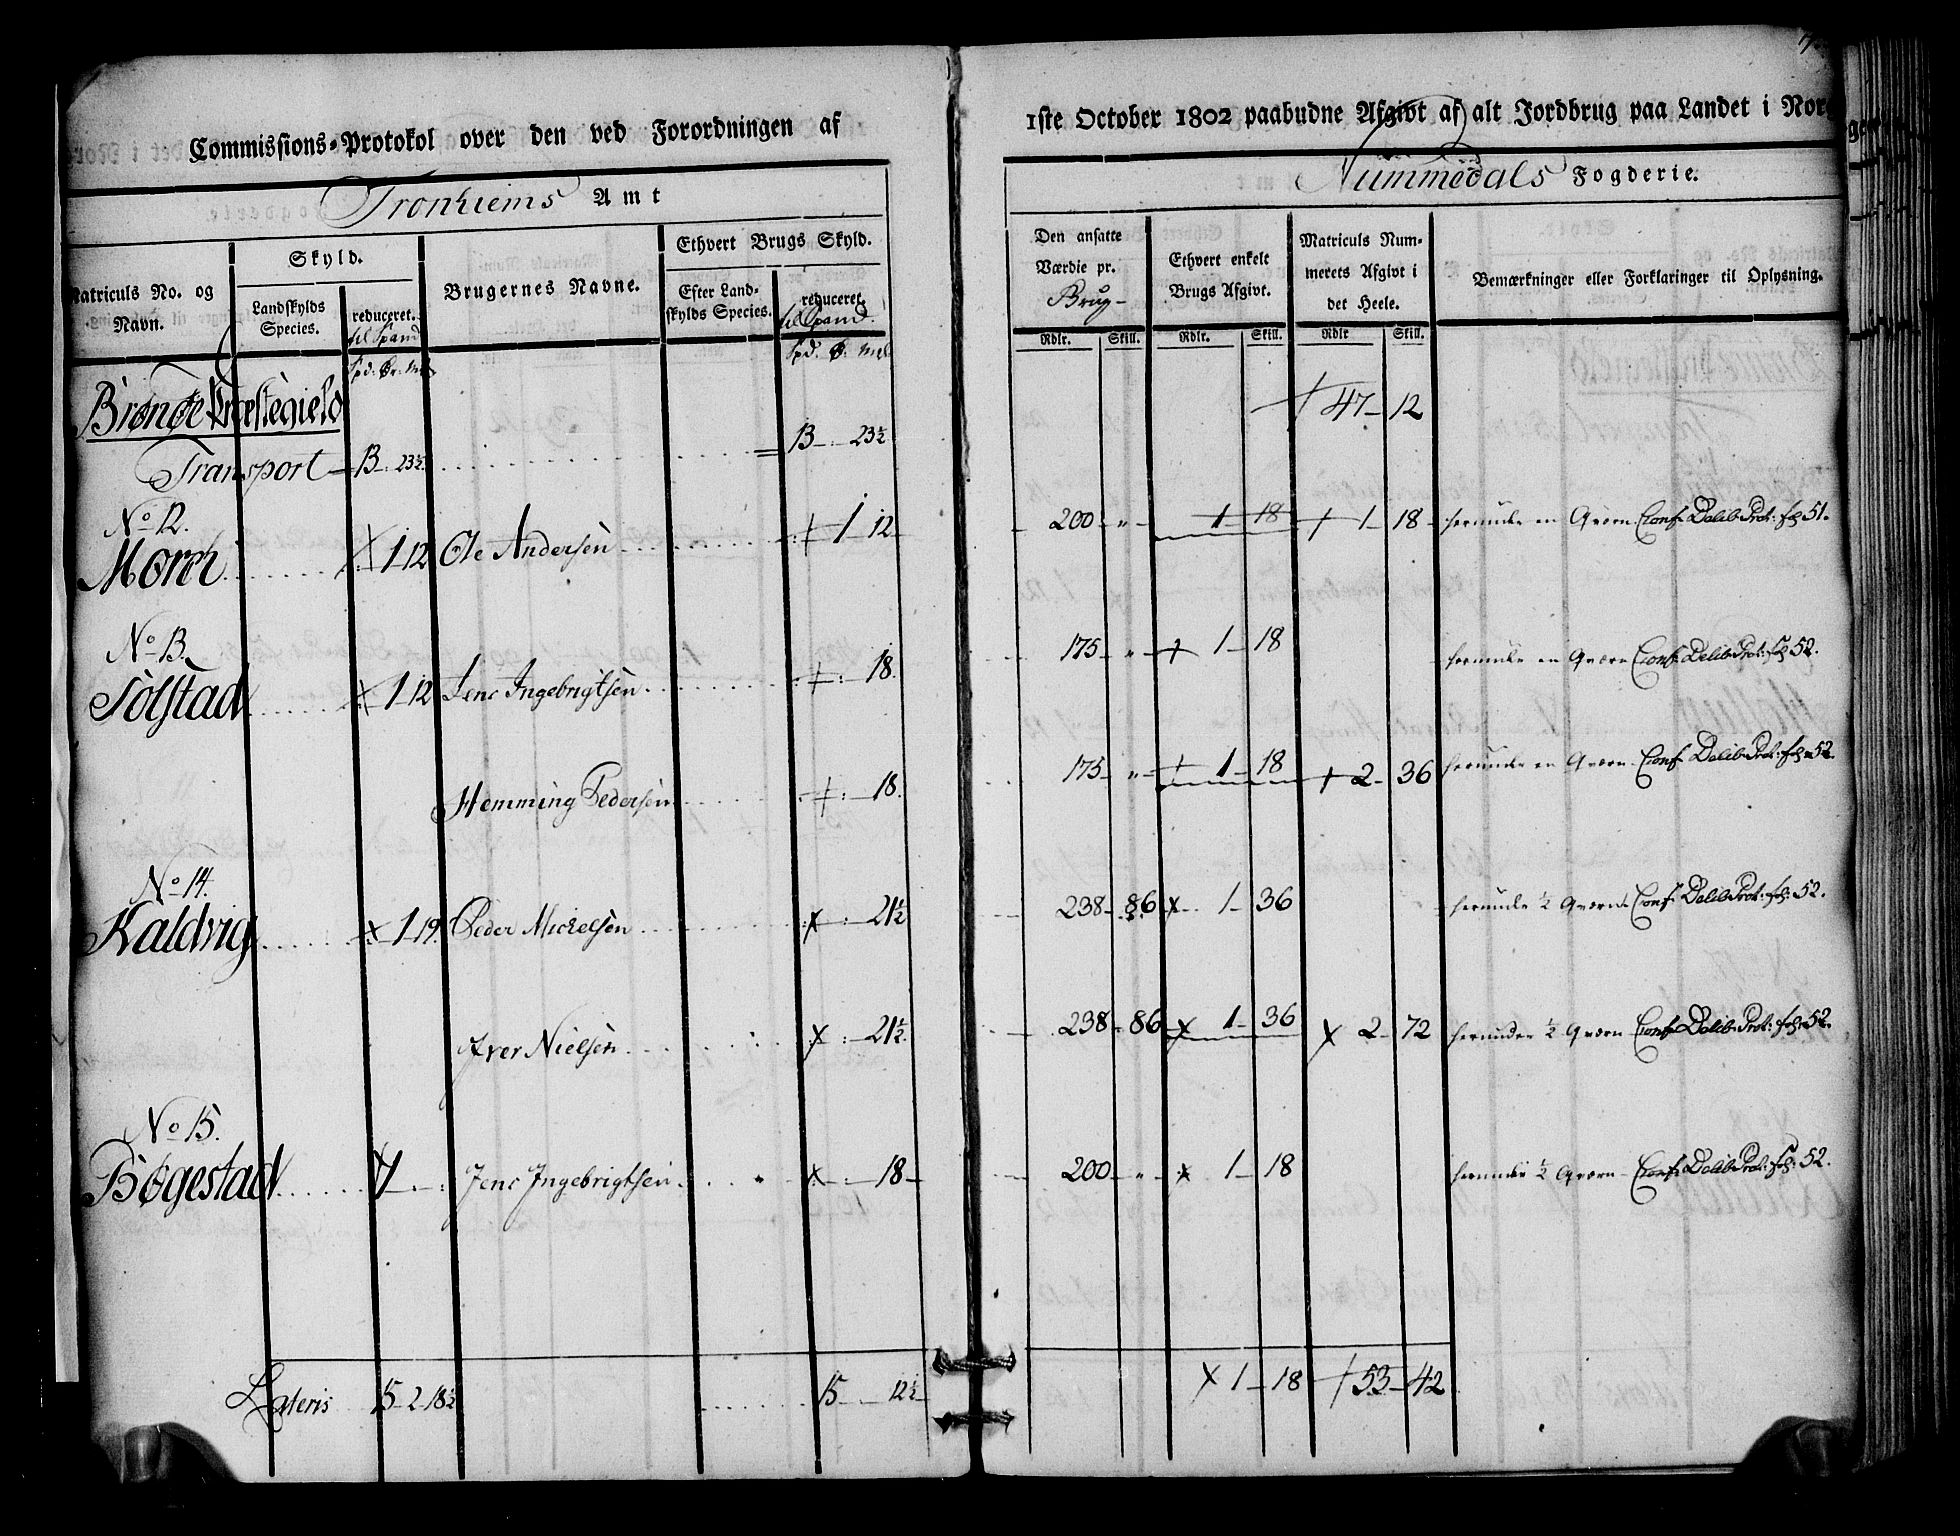 Commissions-Protokol over den ved Forordningen af
Tronhiems Amt
Matriculs No. og Navn.
Skyld.
Landskylds Species.
reduceret.
til Spand
Spd: Ør: Mel
Brugernes Navne.
Ethvert Brugs Skyld.
Efter Landskylds Species.
reduceret.
til Spand.
Spd. Ø: Mel
Biønøe Præstegield
Transport 13 - 23½ 13 - 23½
No 12.
Moren 1 12 Ole Andersen 1 12
No 13.
Solstad 1 12 Jenc Ingebrigtsen 18.
Hemming Pedersen 18.
No 14.
Kaldvig 1 19. Peder Michelsen 21½
Iver Nielsen 21½.
No 15.
Bøgestad 1 Jenc Ingebrigtsen 18
Lateris 15 2 18½ 15 12½
1ste October 1802 paabudne Afgivt af alt Jordbrug paa Landet i Nor
Nummedals Fogderie.
Den ansatte Værdie pr.
Brug
Rdlr. Skill.
Ethvert enkelt Brugs Afgivt.
Rdlr. Skill.
Matriculs Nummerets Afgivt i det Heele.
Rdlr Skill.
Bemærkninger eller Forklaringer til Oplysning.
47 12
200 " 1 18 1 18 herunder en Qværn Conf. Delib. Prot: fol 51.
175 " 1 18 herunder en Qværn Conf. Delib. Prot: fol 52.
175 " 1 18 2 36 herunder en Qværn Conf. Delib. Prot: fol 52.
238 86 1 36 herunder ½ Qværn Conf. Delib. Prot: fol: 52.
238 86 1 36 2 72 herunder ½ Qværn Conf. Delib. Prot: fol: 52.
200 " 1 18 herunder ½ Qværn Conf. Delib. Prot: fol: 52.
1 18 53 42